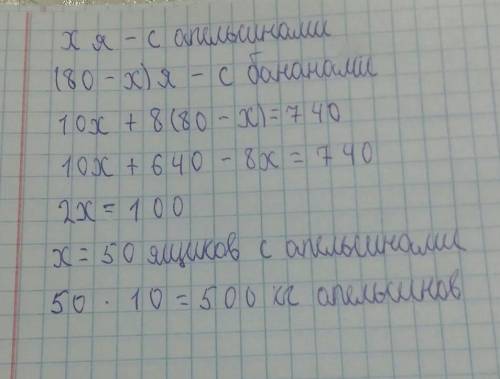 х я - с апельсинами
(80 - х) я - с бананами
10х + 8(80 - х) = 740
10х + 640 - 8х = 740
2х = 100
х = 50 ящиков с апельсинами
50 · 10 = 500 кг апельсинов